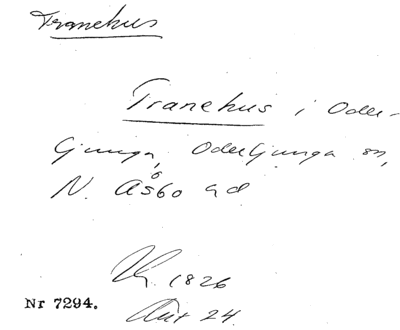 Tranehus
Tranehus i Oder-
ljunga, Oderljunga sn,
N. Åsbo hd
1826
Nr 7294.
Akt 24.